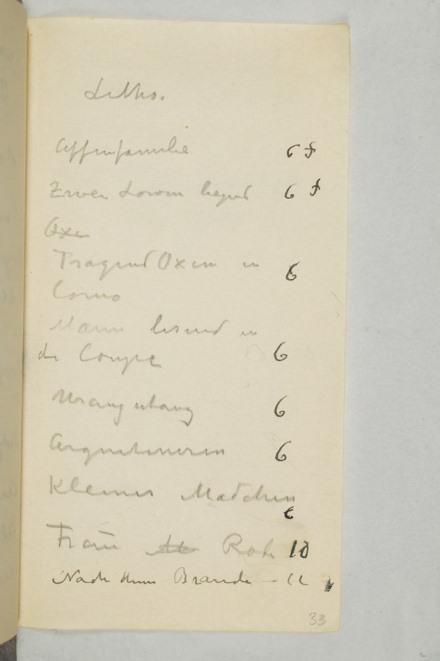 Litho.
Affenfamilie 6 f
Zwei Löwen liegend 6 f
Oxe
Tragend Oxen in 6
Corno
Mann lesend in
der Coupée 6
Urangutang 6
6
Kleines Mädchen
6
Frau Roh 10
Nach dem Brande – 12
33